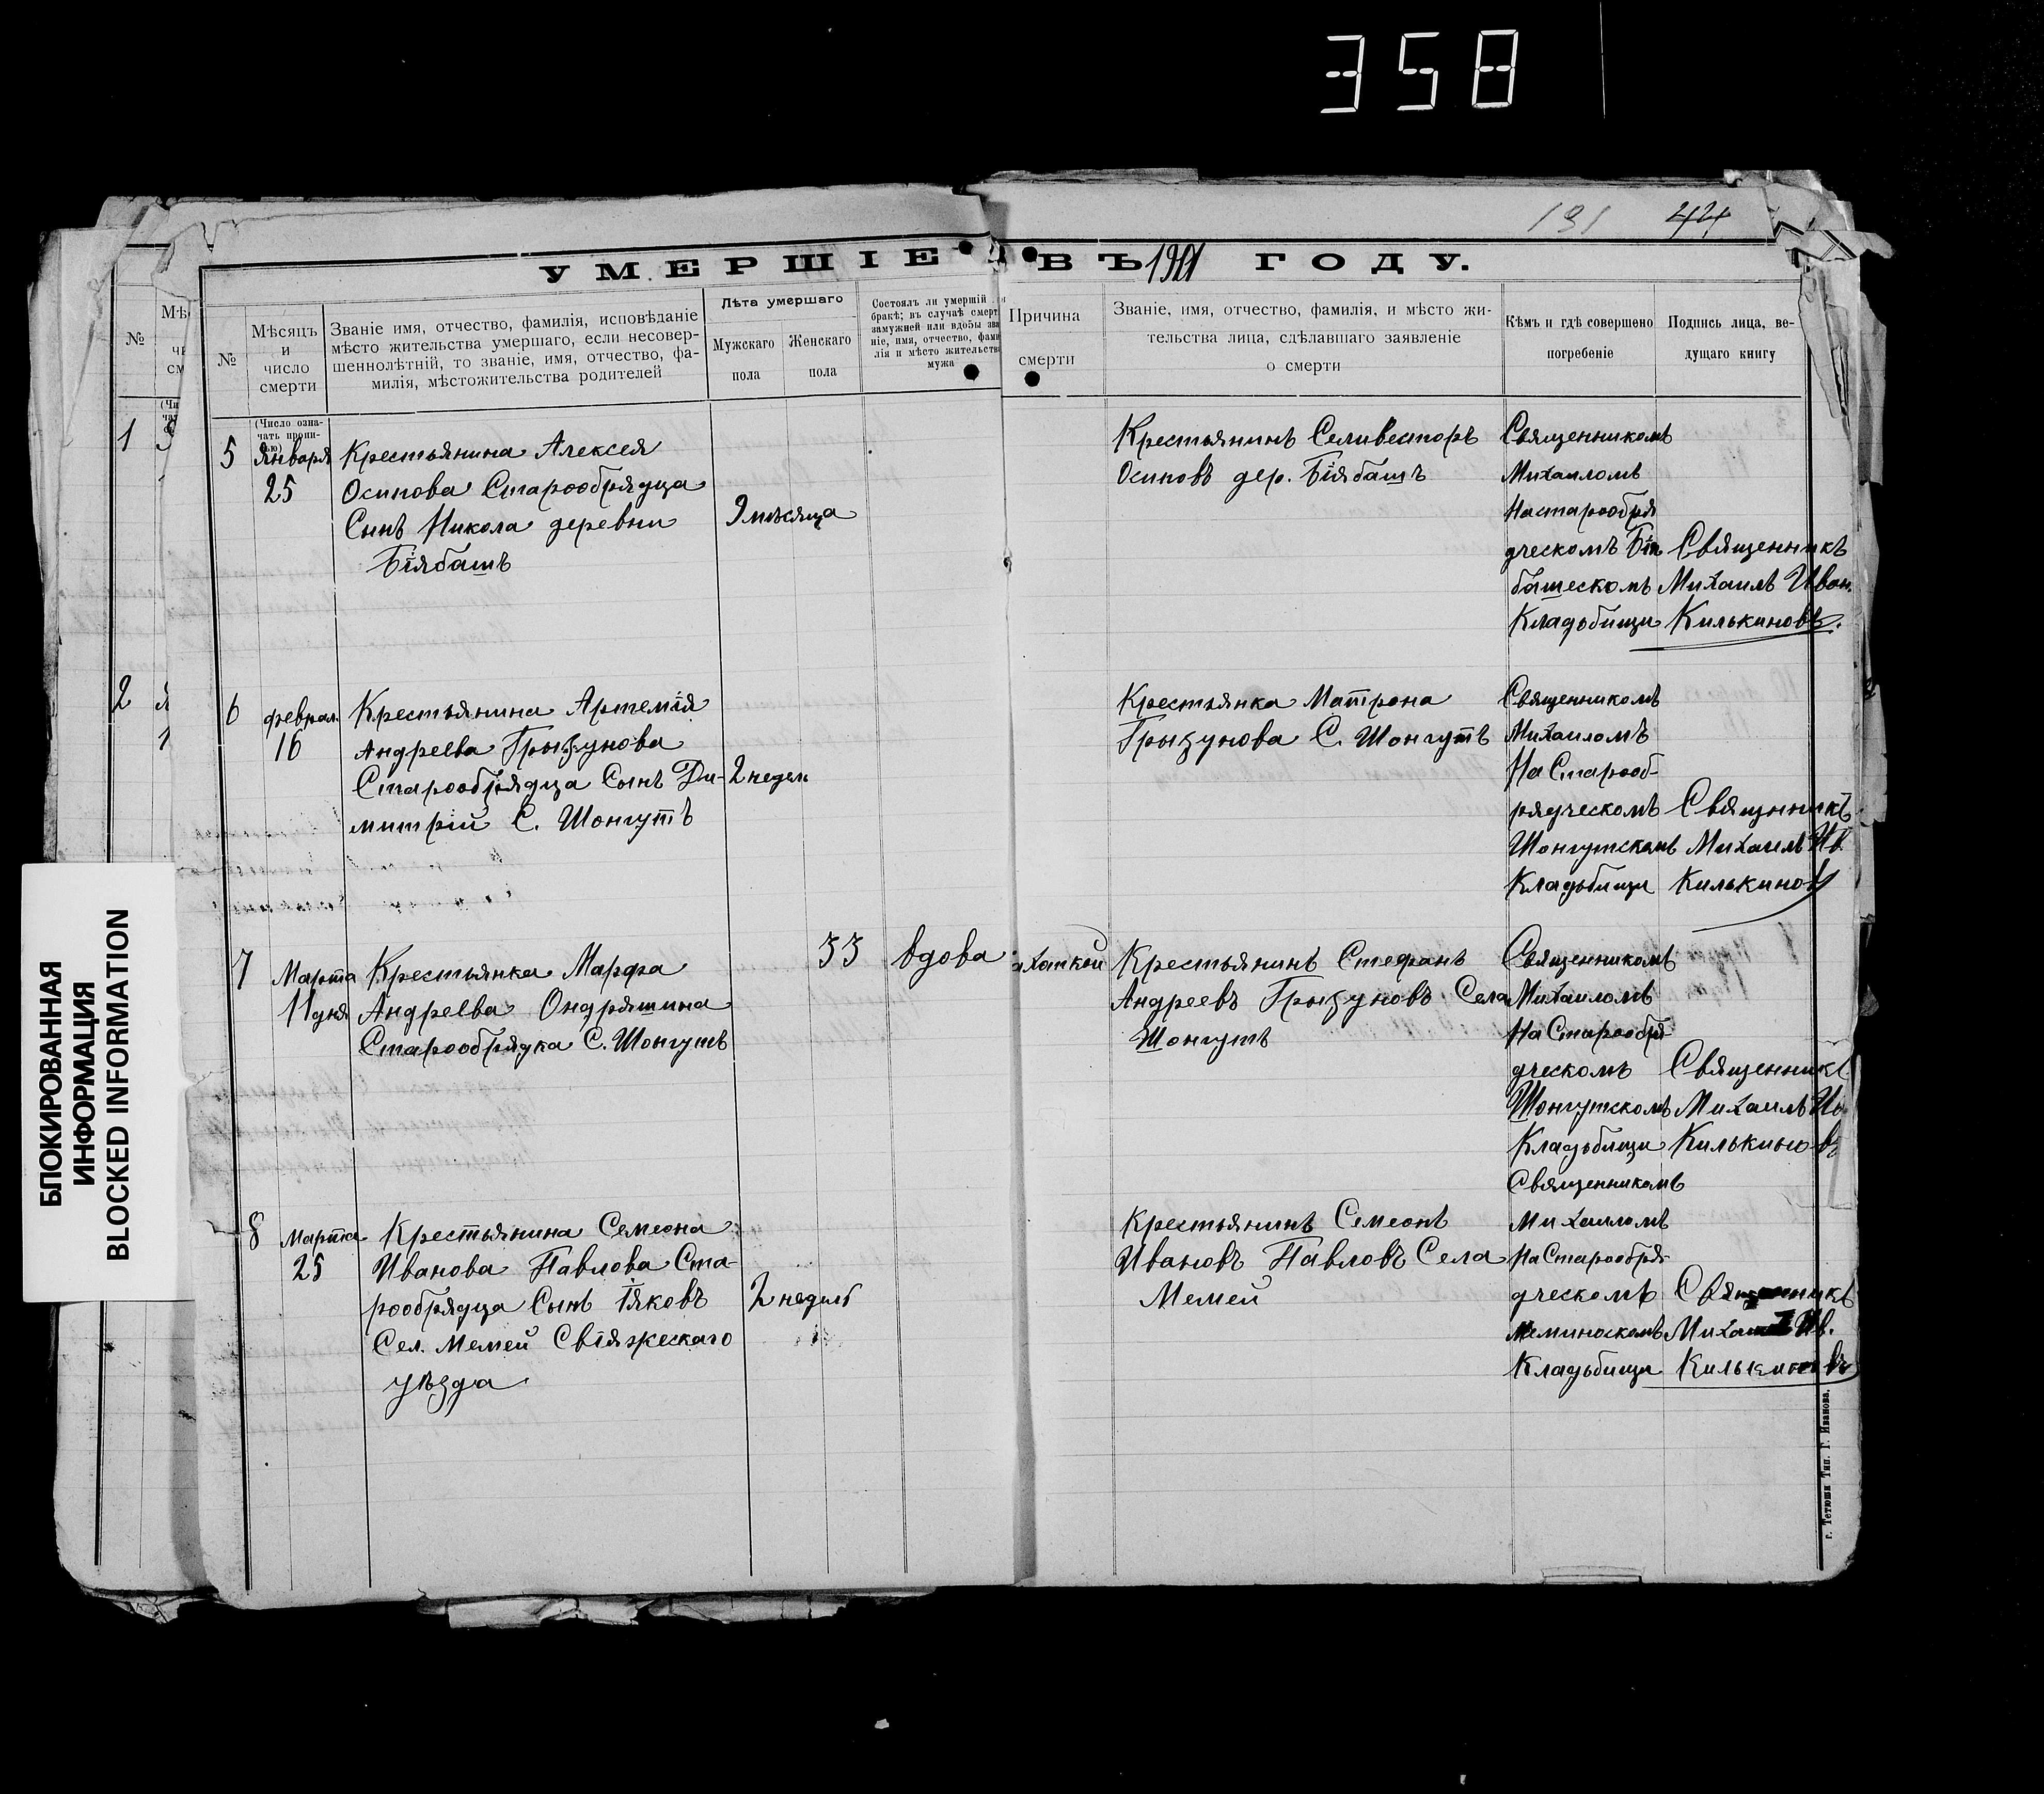 358
191 44
УМЕРШІЕ ВЪ 1911 ГОДУ.
№
Мѣсяцъ
и
число
смерти
Званіе имя, отчество, фамилія, исповѣданіе
мѣсто жительства умершаго, если несовер-
шеннолѣтній, то званіе, имя, отчество, фа-
милія, мѣстожительства родителей
Лѣта умершаго
Мужскаго
пола
Женскаго
пола
Состоялъ ли умершій
бракѣ; въ случаѣ смерт
замужней или вдовы зва
ніе, имя, отчество, фами
лія и мѣсто жительства
мужа
Причина
смерти
Званіе, имя, отчество, фамилія, и мѣсто жи-
тельства лица, сдѣлавшаго заявленіе
о смерти
Кѣмъ и гдѣ совершено
погребеніе
Подпись лица, ве-
дущаго книгу
№
1
2
(Число озна-
чать пропи-
сью)
5
Января
25
Крестьянина Алексея
Осипова Старообрядца
Сынъ Никола деревни
Біябашъ
9 мѣсяца
Крестьянинъ Селивесторъ
Осиповъ дер. Біябашъ
Священникомъ
Михаиломъ
На старообря
дческомъ Бія
башескомъ
Кладьбищи
Священникъ
Михаилъ Иван.
Килькиновъ.
6
феврал.
16
Крестьянина Артемія
Андреева Грызунова
Старообрядца Сынъ Ди-
митрій С. Шонгутъ
2 недели
Крестьянка Матрона
Грызунова С. Шонгутъ
Священникомъ
Михаиломъ
На Старооб-
рядческомъ
Шонгутскомъ
Кладьбищи
Священникъ
Михаилъ Ив.
Килькинов
7
Марта
11 дня
Крестьянка Марфа
Андреева Ондряшина
Старообрядка С. Шонгутъ
53
вдова
Крестьянинъ Стефанъ
Андреевъ Грызуновъ Села
Шонгутъ
Священникомъ
Михаиломъ
На Старообря
дческомъ
Шонгутскомъ
Кладьбищи
Священникъ
Михаилъ Ив
Килькиновъ
8
Марта
25
Крестьянина Семеона
Иванова Павлова Ста-
рообрядца Сынъ Іяковъ
Сел. Мемей Свіяжескаго
уѣзда
2 недель
Крестьянинъ Семеонъ
Ивановъ Павловъ Села
Мемей
Священникомъ
Михаиломъ
На Старообря-
дческомъ
Меминоскомъ
Кладьбищи
Священникъ
Михаилъ Ив.
Килькиновъ
г. Тетюши Тип. Г. Иванова.
БЛОКИРОВАННАЯ
ИНФОРМАЦИЯ
BLOCKED INFORMATION